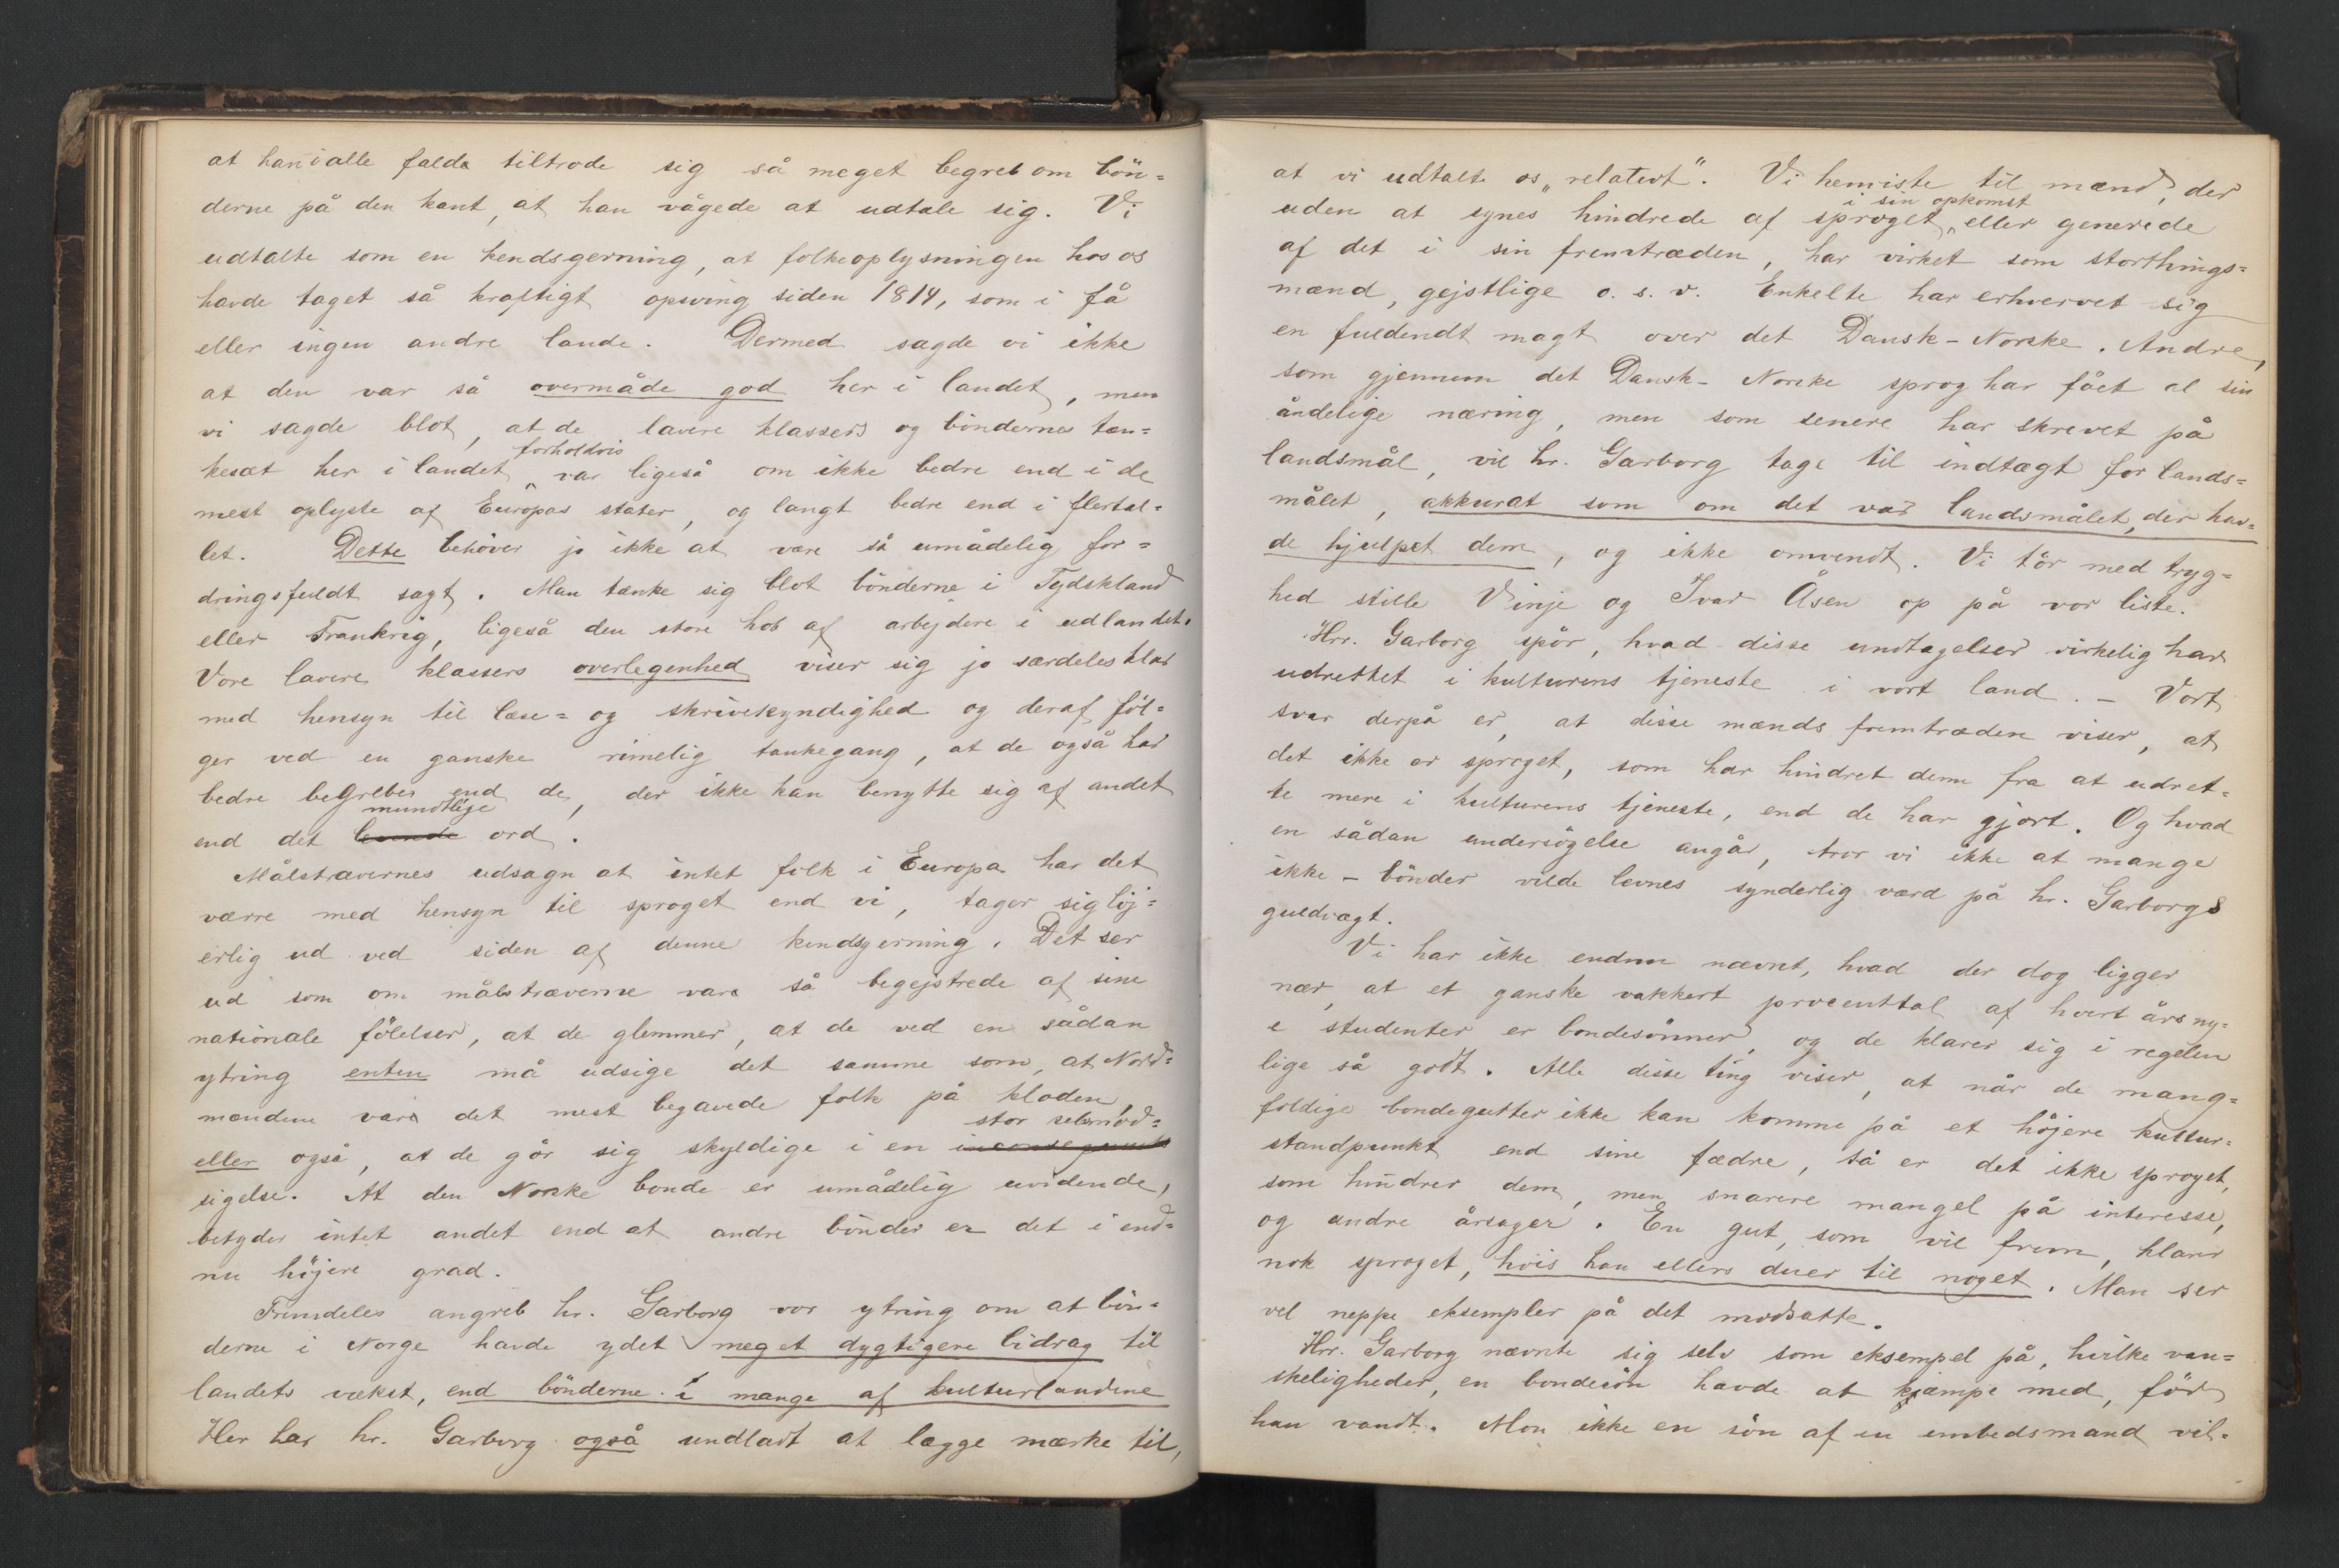 at han i alle falde tiltrode sig så meget begreb om bön=
derne på den kant, at han vågede at udtale sig. Vi
udtalte som en kendsgerning, at folkeoplysningen hos os
havde taget så kraftigt opsving siden 1814, som i få
eller ingen andre lande. Dermed sagde vi ikke
at den var så overmåde god her i landet, men
vi sagde blot, at de lavere klassers og böndernes tæn=
forholdvis
kesæt her i landet var ligeså om ikke bedre end i de
mest oplyste af Europas stater, og langt bedre end i flertal=
let. Dette behöver jo ikke at være så umådelig for=
dringsfuldt sagt. Man tænke sig blot bönderne i Tydskland
eller Frankrig, ligeså den store hob af arbejdere i udlandet.
Vore lavere klassers overlegenhed viser sig jo særdeles klar
med hensyn til læse= og skrivekyndighed og deraf föl=
ger ved en ganske rimelig tankegang, at de også har
bedre begreber end de, der ikke kan benytte sig af andet
mundtlige
end det ord.
Målstrævernes udsagn at intet folk i Europa har det
værre med hensyn til sproget end vi, tager sig löj=
erlig ud ved siden af denne kendsgerning. Det ser
ud som om målstræverne vare så begejstrede af sine
nationale fölelser, at de glemmer, at de ved en sådan
ytring enten må udsige det samme som, at Nord=
mændene vare det mest begavede folk på kloden,
stor selvmod=
eller også, at de gör sig skyldige i en
sigelse. At den Norske bonde er umådelig uvidende,
betyder intet andet end at andre bönder er det i end=
nu höjere grad.
Fremdeles angreb hr. Garborg vor ytring om at bön=
derne i Norge havde ydet meget dygtigere bidrag til
landets vækst, end bönderne i mange af kulturlandene
Her har hr. Garborg også undladt at lægge mærke til,
at vi udtalte os „relativt". Vi henviste til mænd, der
i sin opkomst
uden at synes hindrede af sproget, eller generede
af det i sin fremtræden, har virket som storthings=
mænd, gejstlige o. s. v. Enkelte har erhvervet sig
en fuldendt magt over det Dansk-Norske. Andre,
som gjennem det Dansk-Norske sprog har fået al sin
åndelige næring, men som senere har skrevet på
landsmål, vil hr. Garborg tage til indtægt for lands=
målet, akkurat som om det var landsmålet, der hav=
de hjulpet dem, og ikke omvendt. Vi tör med tryg=
hed stille Vinje og Ivar Åsen op på vor liste.
Hrr. Garborg spör, hvad disse undtagelser virkelig har
udrettet i kulturens tjeneste i vort land. – Vort
svar derpå er, at disse mænds fremtræden viser, at
det ikke er sproget, som har hindret dem fra at udret=
te mere i kulturens tjeneste, end de har gjort. Og hvad
en sådan undersögelse angår, tror vi ikke at mange
ikke – bönder vilde levnes synderlig værd på hr. Garborgs
guldvægt.
Vi har ikke endnu nævnt, hvad der dog ligger
nær, at et ganske vakkert procenttal af hvert års ny=
e studenter er bondesönner, og de klarer sig i regelen
lige så godt. Alle disse ting viser, at når de mang=
foldige bondegutter ikke kan komme på et höjere kultur=
standpunkt end sine fædre, så er det ikke sproget,
som hindrer dem, men snarere mangel på interesse,
og andre årsager. En gut, som vil frem, klarer
nok sproget, hvis han ellers duer til noget. Man ser
vel neppe eksempler på det modsatte.
Hrr. Garborg nævnte sig selv som eksempel på, hvilke van=
skeligheder, en bondesön havde at kjæmpe med, för
han vandt. Mon ikke en sön af en embedsmand vil=